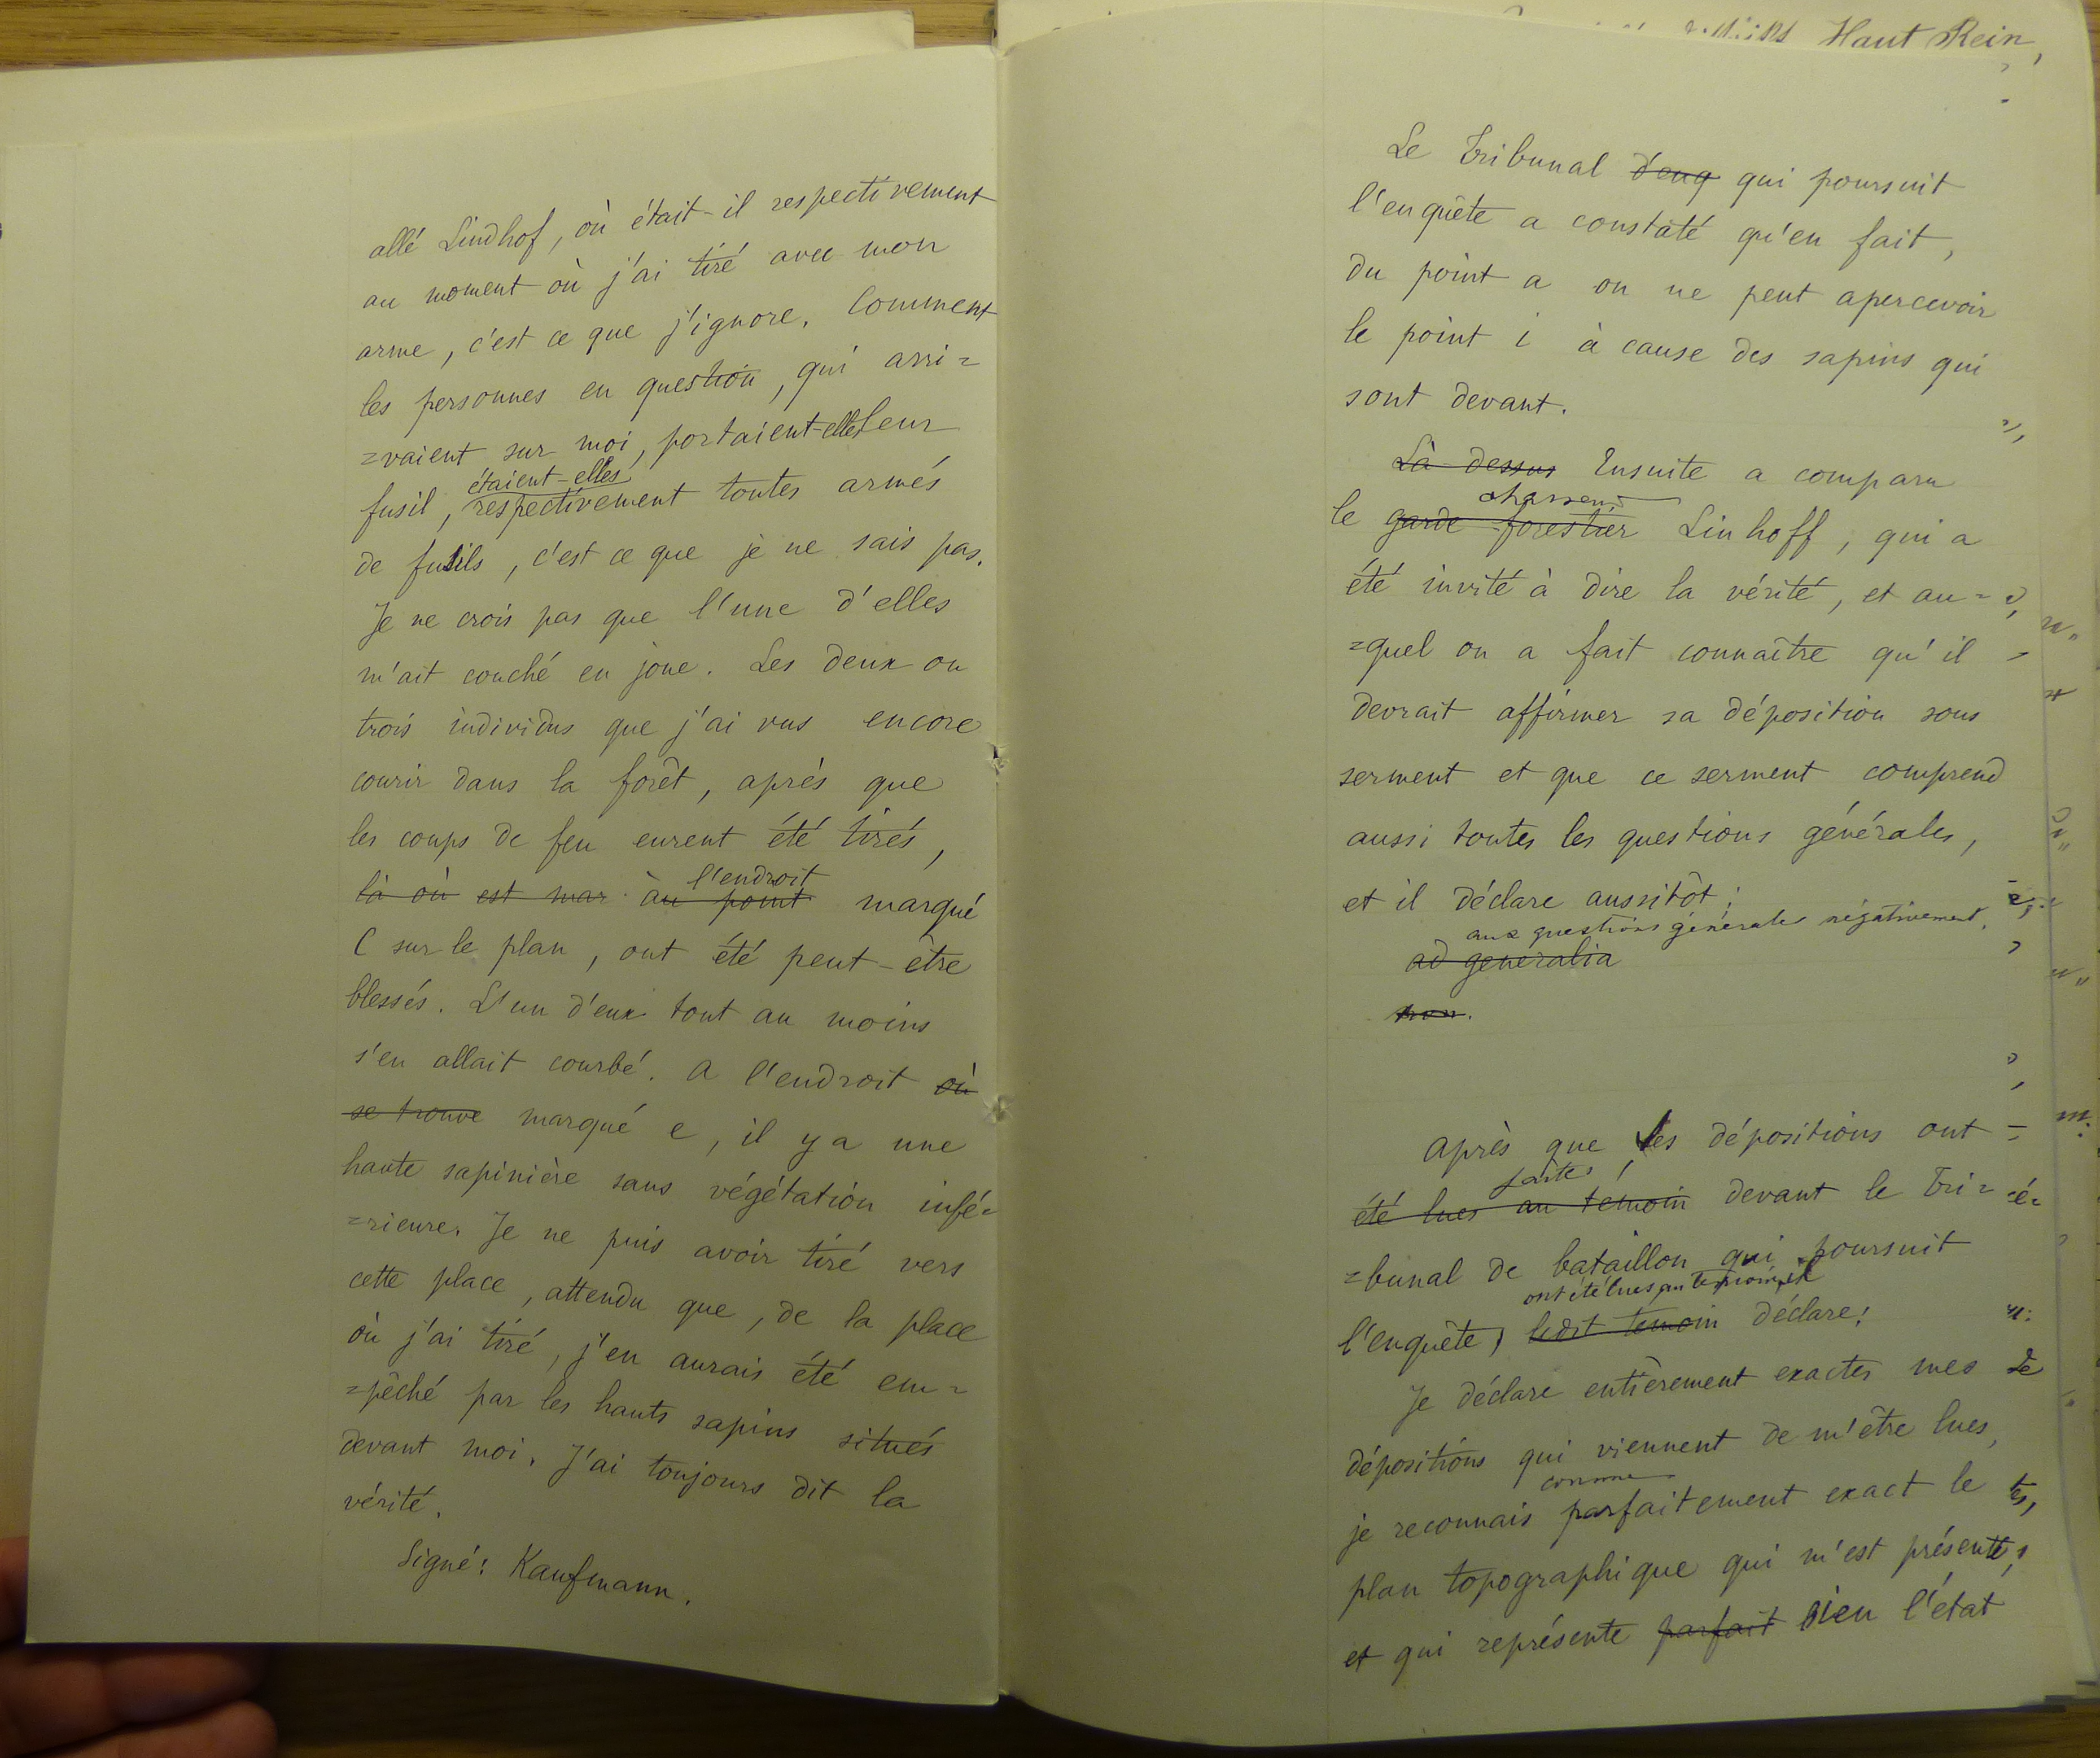 allé Lindhof, où était-il respectivement
au moment où j'ai tiré avec mon
arme, c'est ce que j'ignore. Comment
les personnes en question, qui arri=
=vaient sur moi, portaient-elles leur
étaient-elles
fusil, respectivement toutes armés
de fusils, c'est ce que je ne sais pas.
Je ne crois pas que l'une d'elles
m'ait couché en joue. Les deux ou
trois individus que j'ai vus encore
courir dans la forêt, après que
les coups de feu eurent été tirés,
l'endroit
là où est mar au point marqué
C sur le plan, ont été peut-être
blessés. L'un d'eux tout au moins
s'en allait courbé. A l'endroit où
se trouve marqué e, il y a une
haute sapinière sans végétation infé=
=rieure. Je ne puis avoir tiré vers
cette place, attendu que, de la place
où j'ai tiré, j'en aurais été em=
=pêché par les hauts sapins situés
devant moi. J'ai toujours dit la
vérité.
Signé: Kaufmann.
Haut Rein,
Le Tribunal d'enq qui poursuit
l'enquête a constaté qu'en fait,
du point a on ne peut apercevoir
le point i à cause des sapins qui
sont devant.
Là-dessus Ensuite a comparu
chasseur
le garde forestier Linhoff, qui a
été invité à dire la vérité, et au=
=quel on a fait connaître qu'il
devrait affirmer sa déposition sous
serment et que ce serment comprend
aussi toutes les questions générales,
et il déclare aussitôt:
aux questions générales négativement.
ad generalia
non.
Après que les dépositions ont
faites
été lues au témoin devant le Tri=
=bunal de bataillon qui poursuit
ont été lues au témoin, il
l'enquête, ledit témoin déclare:
Je déclare entièrement exactes mes
dépositions qui viennent de m'être lues,
comme
je reconnais parfaitement exact le
plan topographique qui m'est présenté,
et qui représente parfait bien l'état